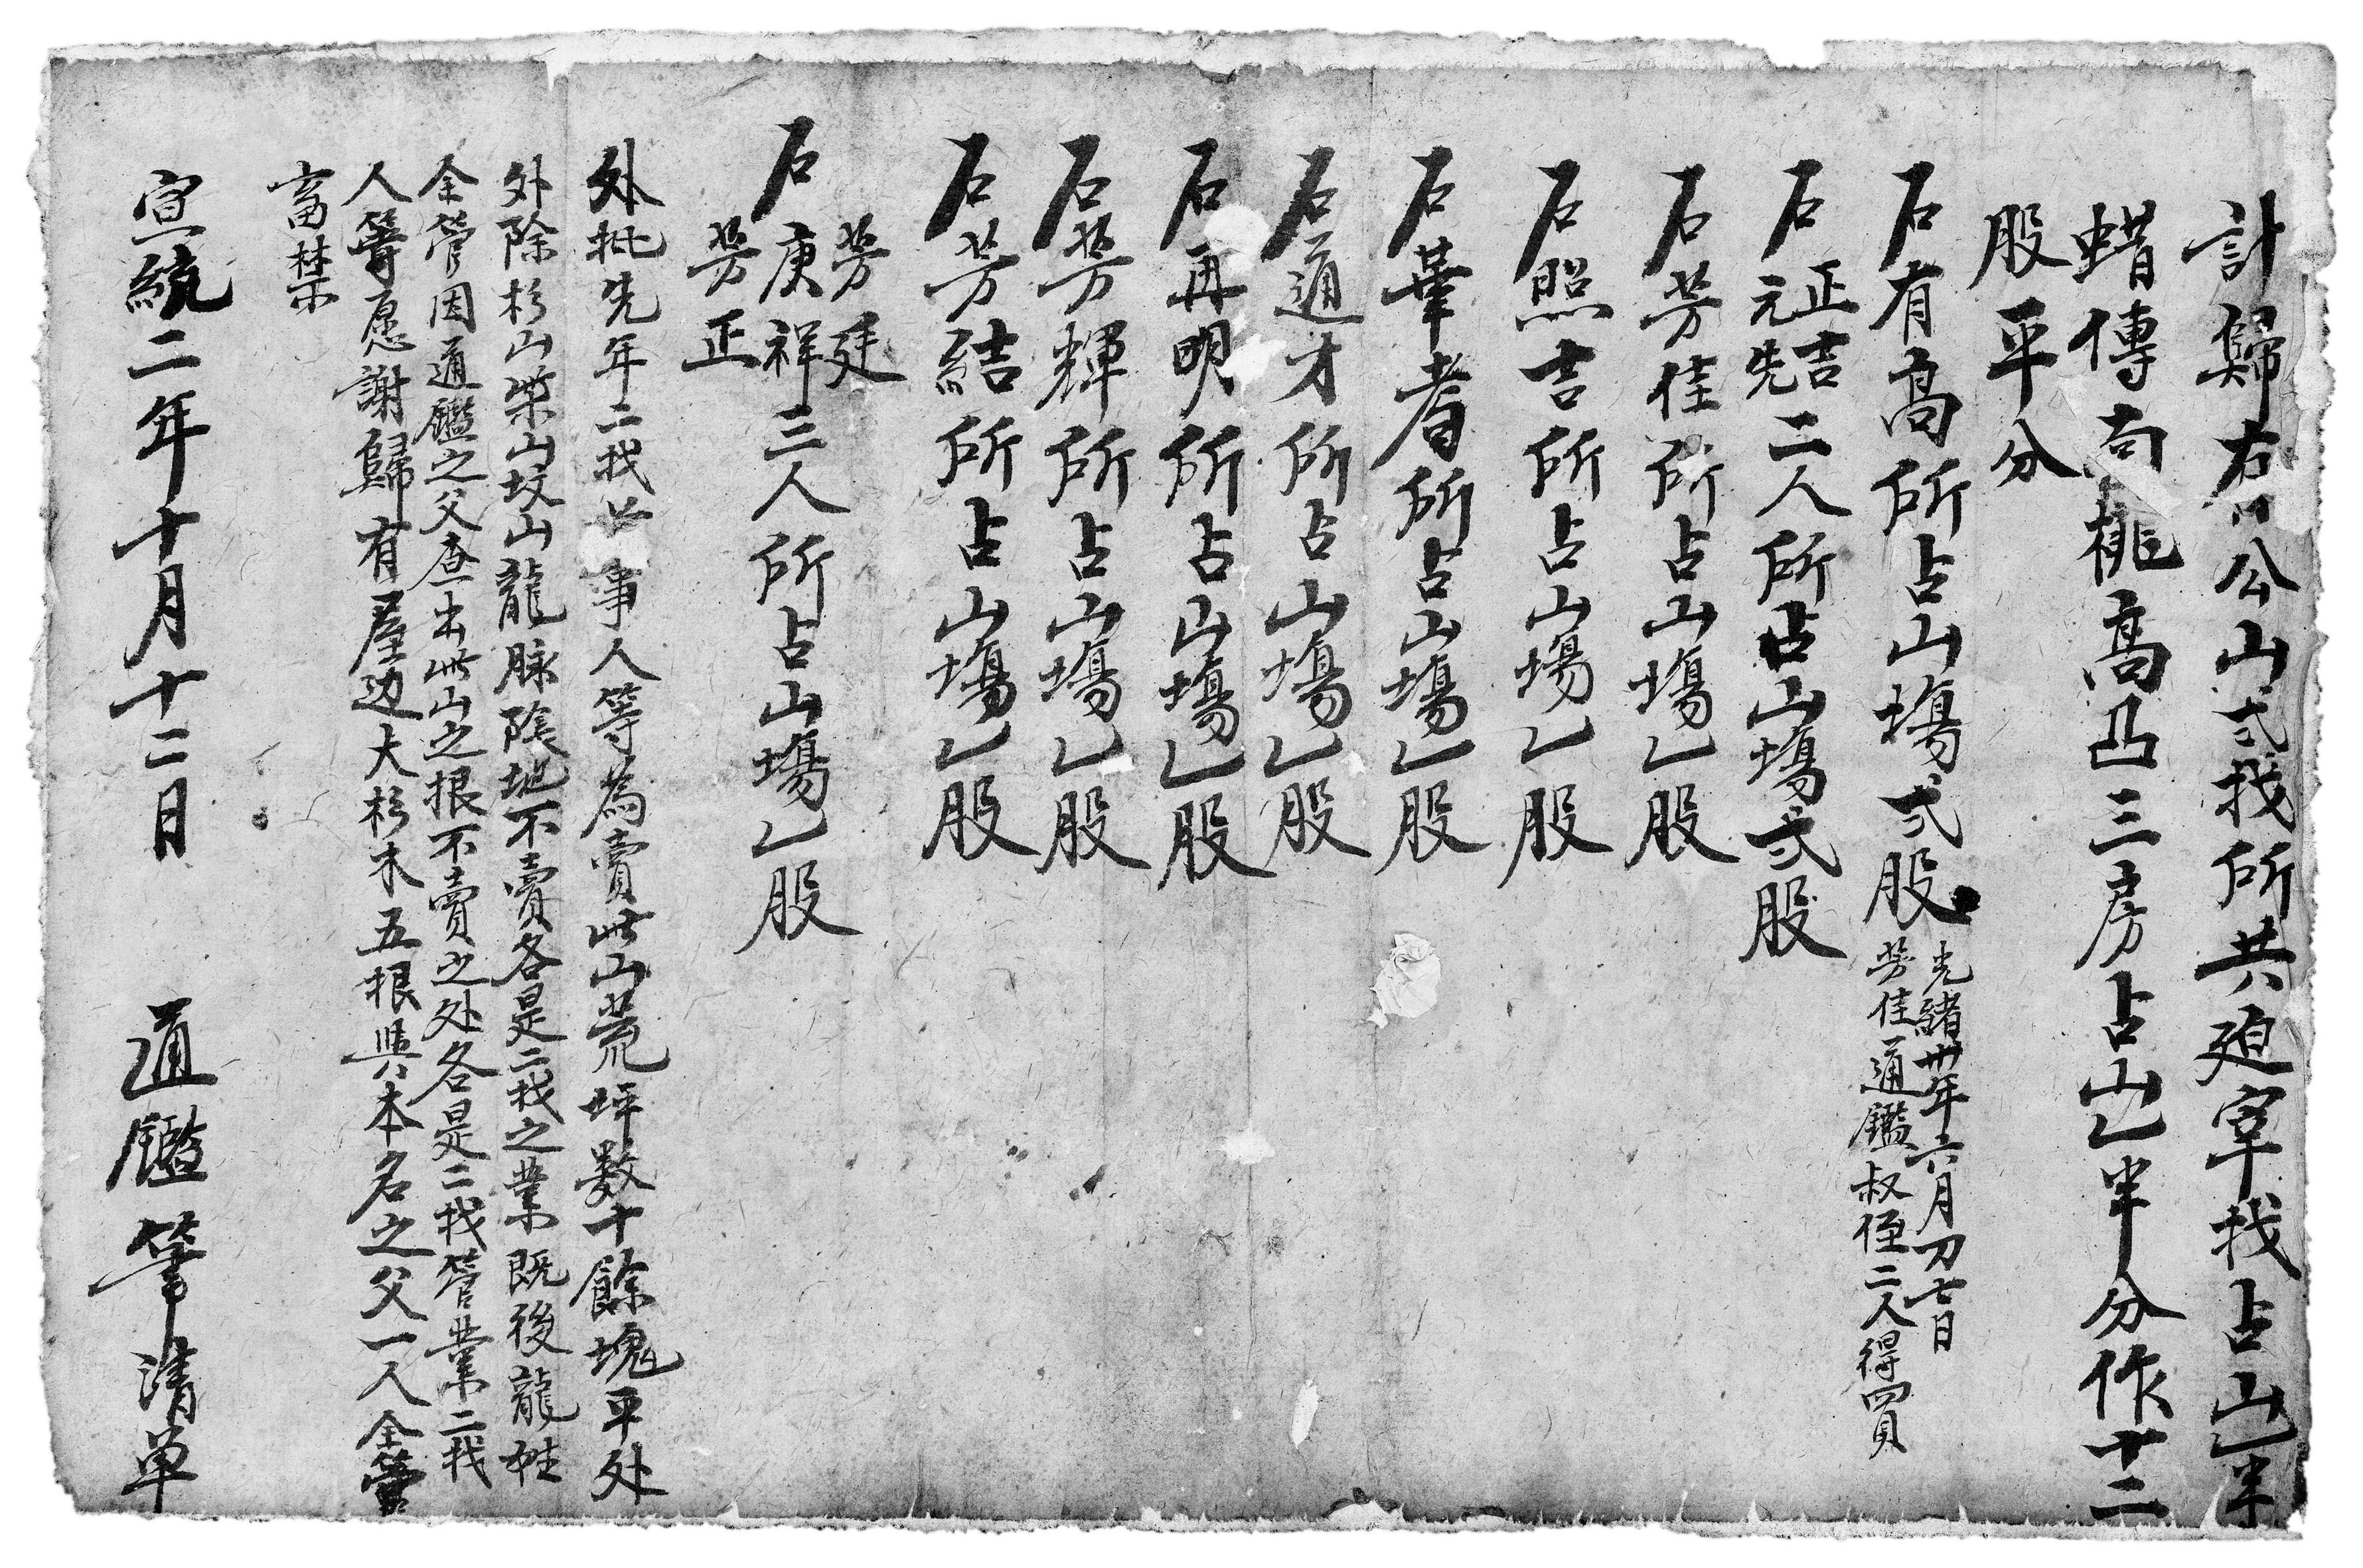 計歸右公山弍找所共廹寨找占山乚半
蜡傳南桃高凸三房占山乚半分作十二
股平分
石有高所占山塲弍股 光緒卅年六月刀七日
芳佳通鑑叔侄二人得買
石正吉元先二人所占山塲弍股
石芳佳所占山塲乚股
石照吉所占山塲乚股
石華耆所占山塲乚股
石通才所占山塲乚股
石再明所占山塲乚股
石芳輝所占山塲乚股
石芳結所占山塲乚股
石芳廷庚祥芳正三人所占山塲乚股
外批先年二找 事人等為賣此山荒坪数十餘塊平处
外除杉山柴山坟山龍脉陰地不賣各是二找之業既後龍姓
仝管因通鑑之父查出此山之根不賣之处各是二找管業二找
人等愿謝歸有屋边大杉木五根與本名之父一人仝管
畜禁
宣統二年十月十二日 通鑑筆清单